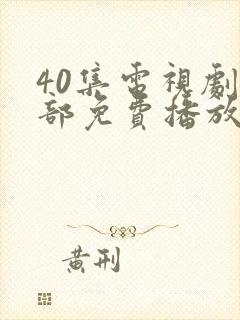 40集電視劇
部免費播放
黃刑